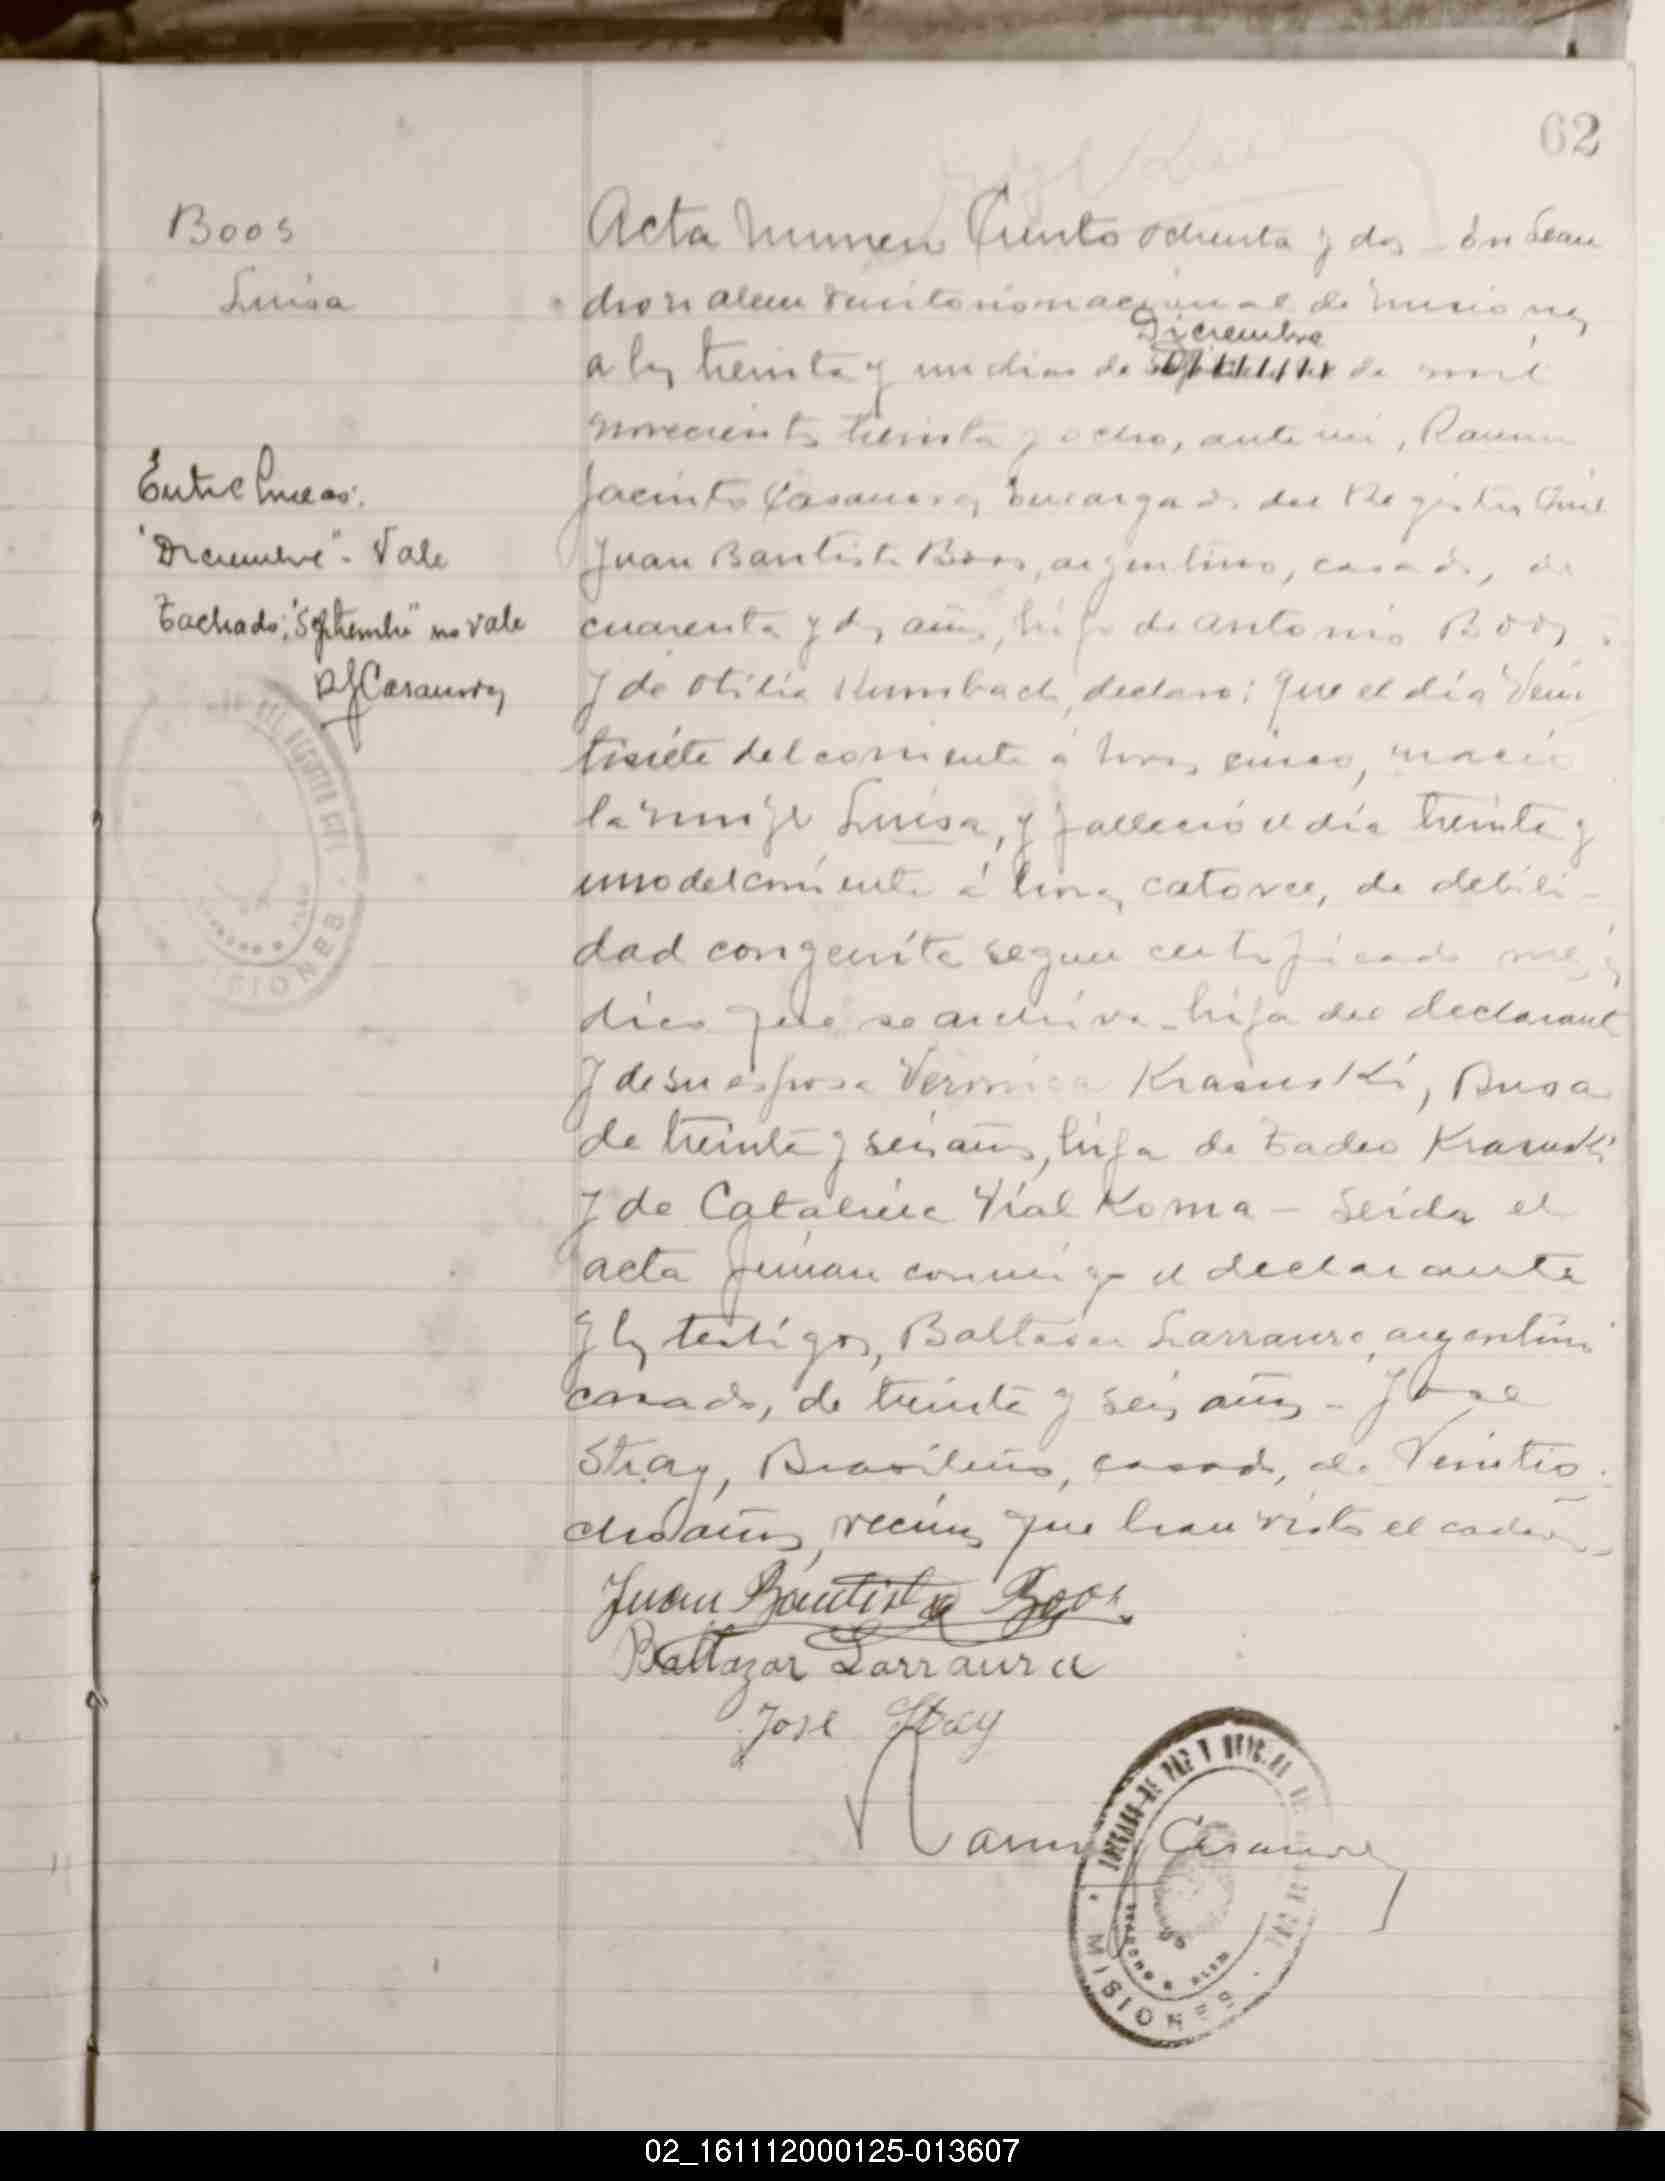 62
Boos
Luisa
Acta numero Ciento ochenta y dos - En Lean
dro N alem territorio nacional de Misiones
Diciembre
a los treinta y un dias de Septiembre de mil
novecientos treinta y ocho, ante mi, Ramon
Jacinto Casanova, Encargado del Registro Civil
Juan Bautista Boos, argentino, casado, de
cuarenta y dos años, hijo de antonio Boos
y de Otilia Kumbach, declaro: Que el día Vein
tisiete del corriente á horas cinco, nació
la mujer Luisa, y falleció el día treinta y
uno del corriente á horas catorce, de debili-
dad congenita segun certificado mé
dico que se archiva - hija del declarant
y de su esposa Veronica Krasuski, Rusa
de treinta y seis años, hija de Tadeo Krasuski
y de Catalina Vial Koma - Leida el
acta firman conmigo el declarante
y los testigos, Baltasar Larraura, argentino
casado, de treinta y seis años - José
Stray, Brasileño, casado, de Veintio
cho años, vecinos que han visto el cadaver
Entre lineas:
"Diciembre" - Vale
Tachado: "Septiembre" no vale
RJCasanova
MISIONES
Juan Bautista Boos
Baltazar Larraura
José Stray
Ramon Casanova
JUZGADO DE PAZ Y
LEANDRO N. ALEM
MISIONES
02_161112000125-013607